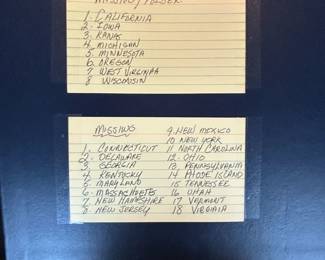 MISSING / FOLDER
1. CALIFORNIA
2. IOWA
3. KANAS
4 MICHIGAN
5 MINNESOTA
6. OREGON
7 WEST VIRGINIA
8 WISCONSIN
MISSING
1. CONNECTICUT
2- DELAWARE
3 GEORGIA
4 KENTUCKY
5 MARYLAND
6 MASSACHUSETTS
7 NEW HAMPSHIRE
8 NEW JERSEY
9. NEW MEXICO
10 NEW YORK
11 NORTH CAROLINA
12- OHIO
13 PENNSYLVANIA
14 RHODE ISLAND
15 TENNESSEE
16 UTAH
17 VERMONT
18 VIRGINIA